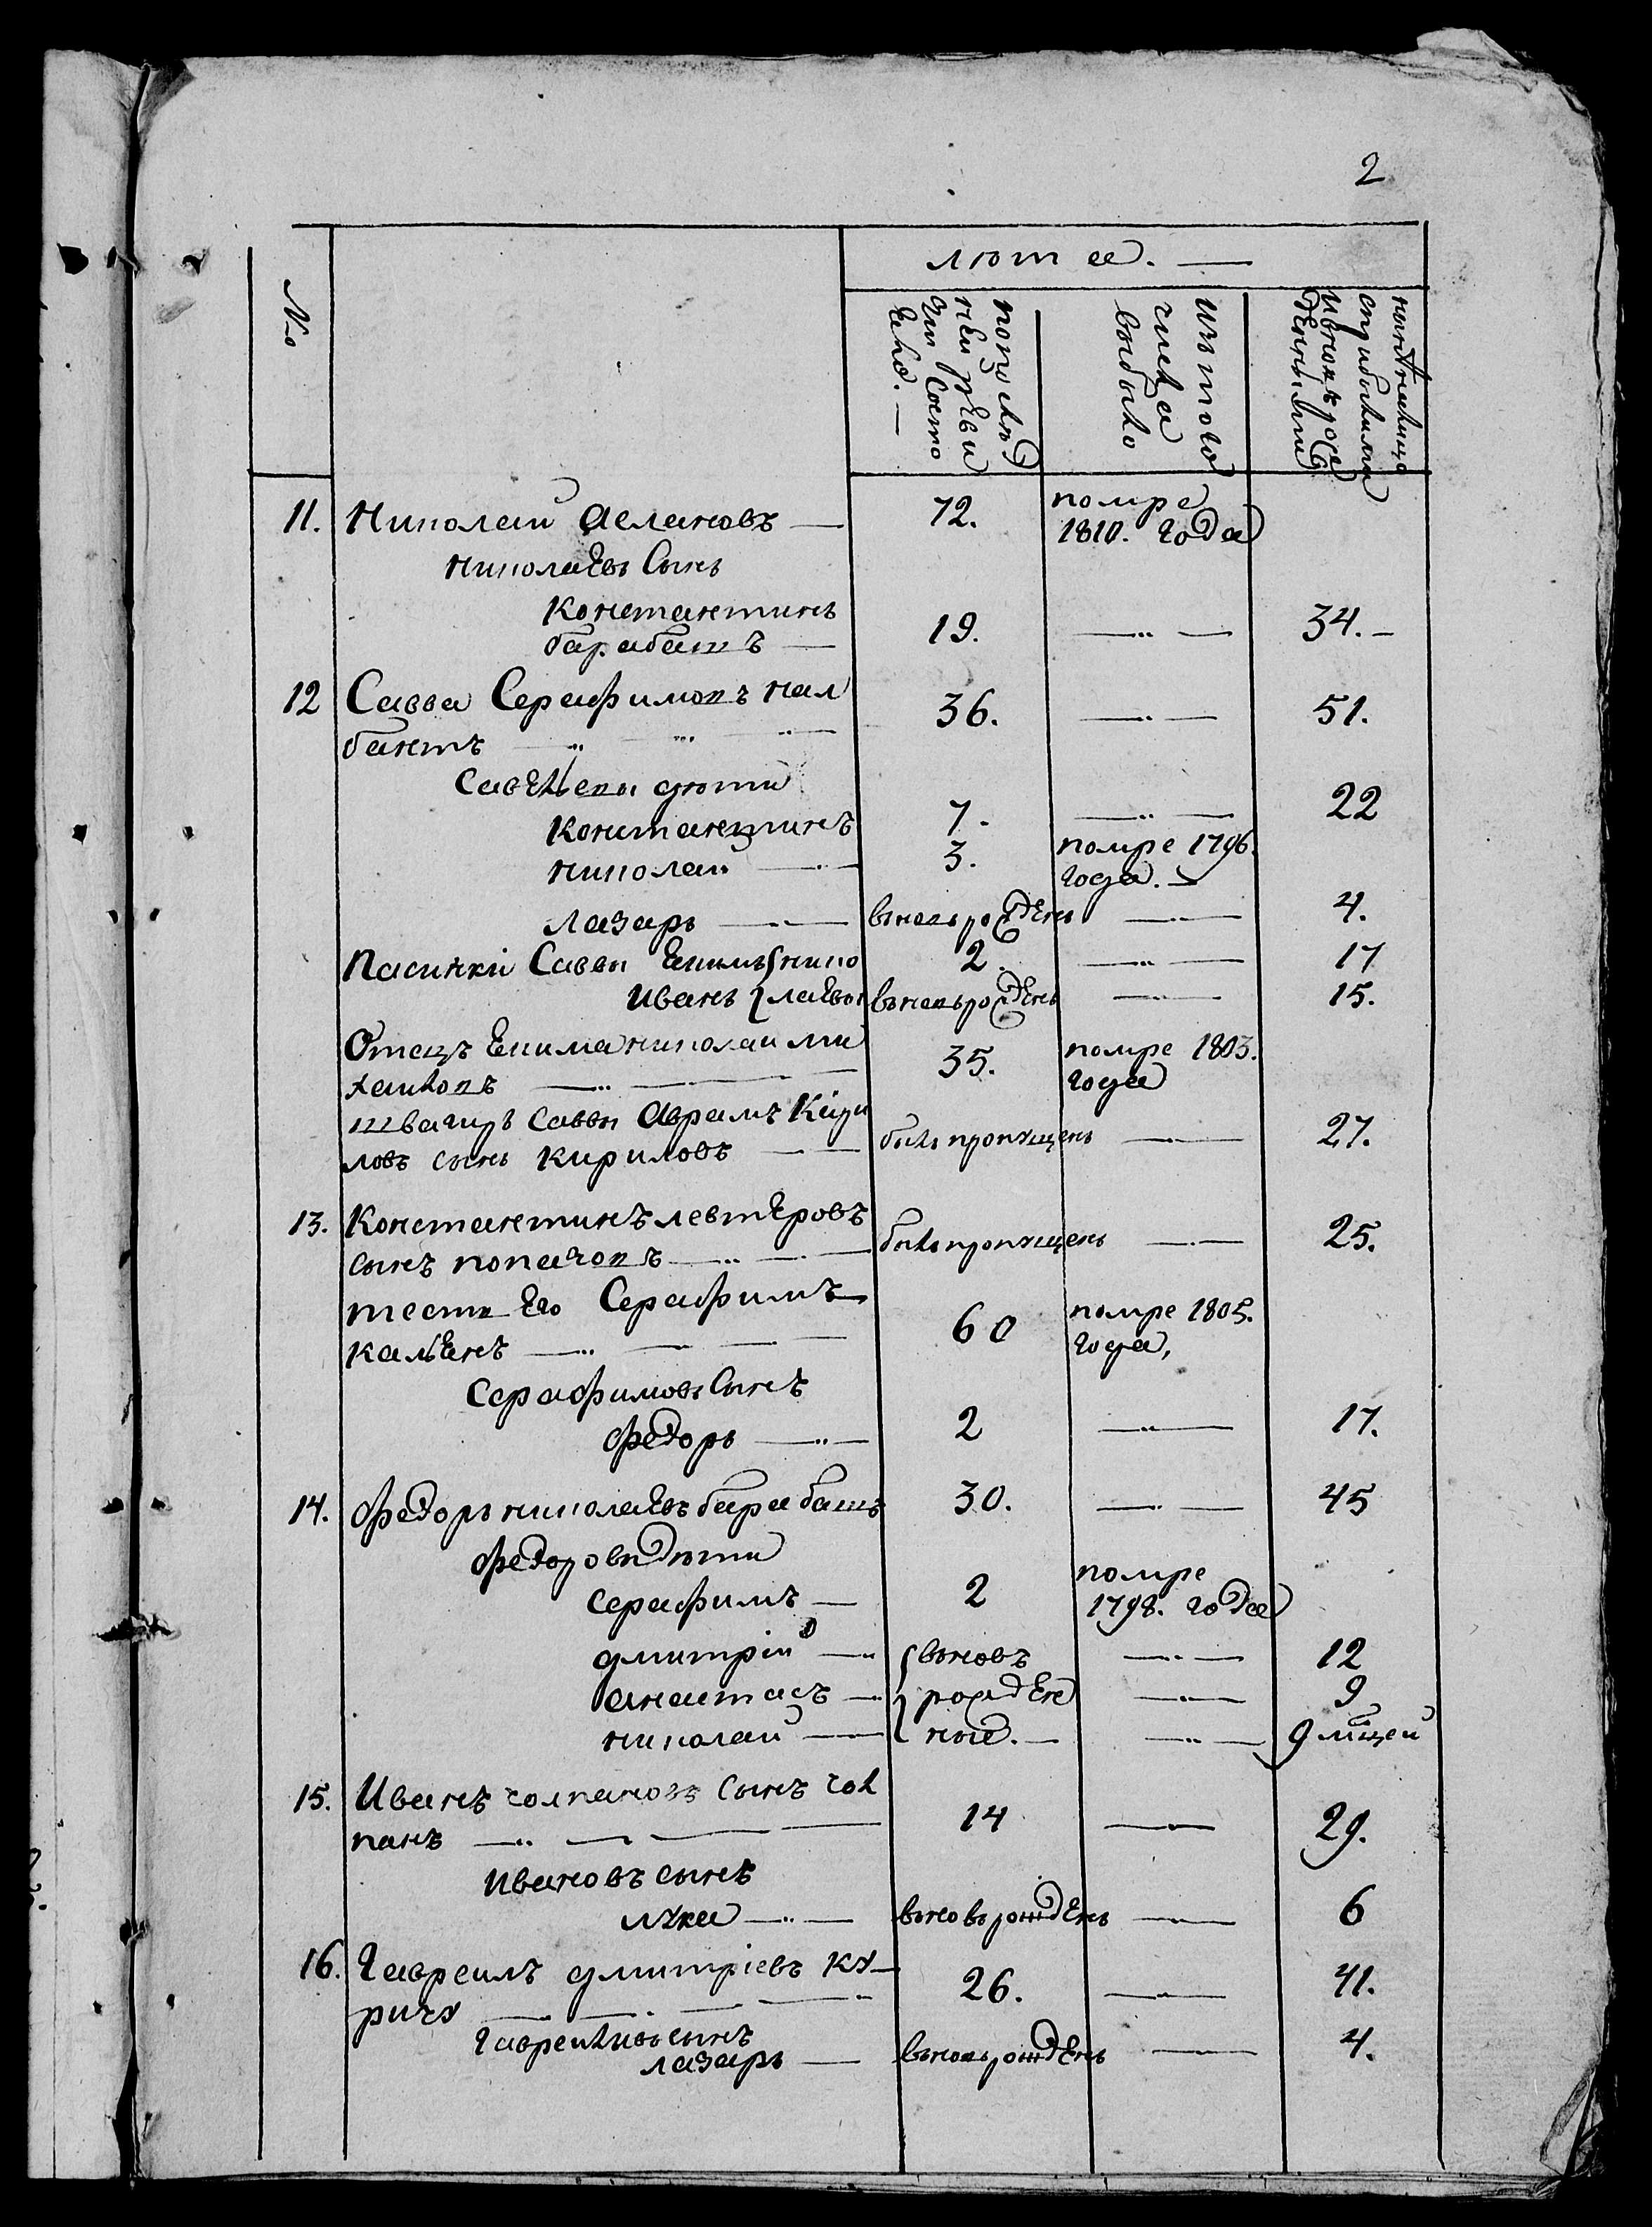 2
лѣта. —
№
попослѣд
ней реви
зіи состо
яло. —
изътого
числа
выбыло
ныне налицо
сприбылыми
ивновь рож
денными
11. Николай Аслановъ — 72. помре
1810. года
николаевъ Сынъ
Константинъ
барабашъ — 19. — 34. —
12 Савва Серафимовъ нал
бантъ — 36. — 51.
Савельевы дѣти
Константинъ 7. — 22
николай — 3. помре 1796.
года. —
Лазарь — вновь рожденъ — 4.
Пасинки Саввы Екимъ { нико 2. — 17
Иванъ { лаевы вновь рожденъ — 15.
Отецъ Екима николай ми
хайловъ — 35. помре 1803.
года
швагиръ Саввы Аврамъ Кири
ловъ сынъ Кириловъ — былъ пропущенъ — 27.
13. Константинъ левтеровъ
сынъ попазовъ — былъ пропущенъ — 25.
тесть Его Серафимъ
кальЕнъ — 60 помре 1805.
года,
Серафимовъ Сынъ
Федоръ — 2 — 17.
14. Федоръ николаевъ барабашъ 30. — 45
Федоровы дѣти
Серафимъ — 2 помре
1798. года
дмитрій — { вновь — 12
анастасъ — } рожден — 9
николай — { ные. — — 9 мцей
15. Иванъ чолпановъ сынъ чол
панъ — 14 — 29.
Ивановъ сынъ
лука — вновь рожденъ — 6
16. Гавреилъ дмитріевъ ку–
ричу — 26. — 41.
Гавреиловъ сынъ
лазарь — вновь рожденъ — 4.